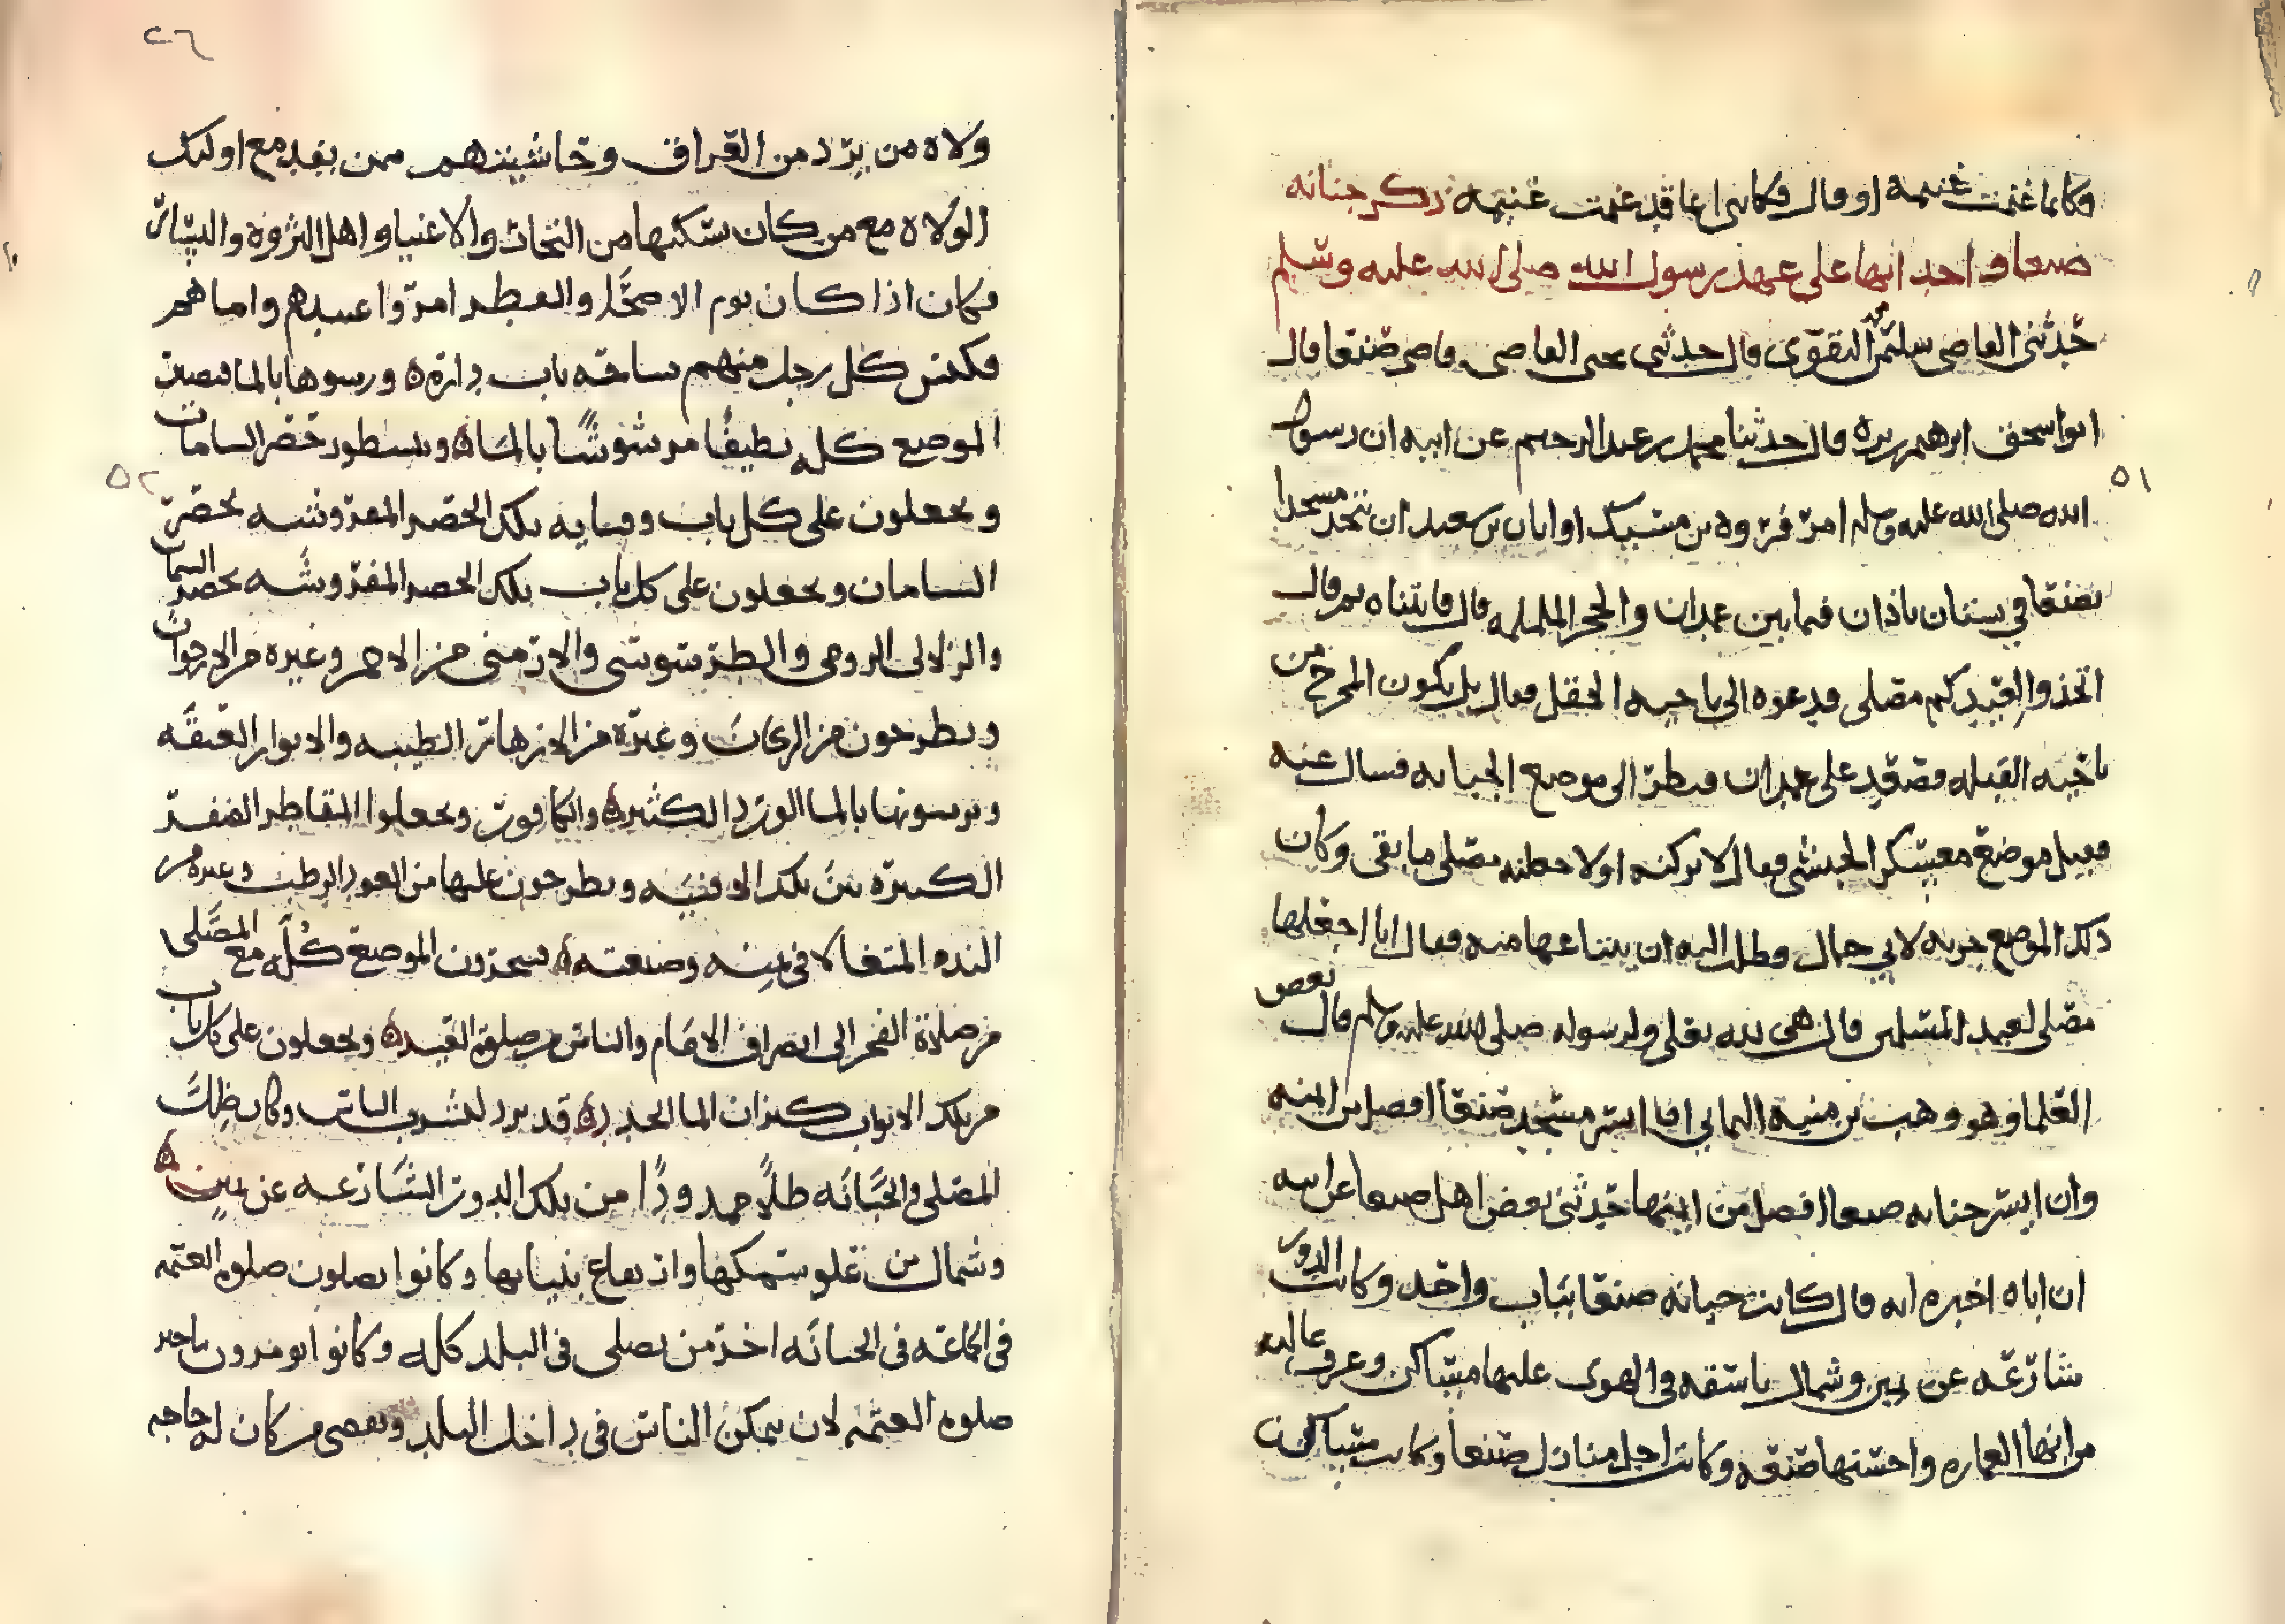 فكانما غنمت غنيمه او قال فكانى انما قد غنمت غنيمه ذكر جبانه
صنعا واحداثها على عهد رسول الله صلى الله عليه وسلم
حدثنى القاضى سليمن محمد النقوى قال حدثنى يحيى القاضى قاضى صنعا قال
ابو اسحق ابرهيم قال حدثنا محمد بن عبد الرحيم عن ابيه ان رسول
الله صلى الله عليه وسلم امر فروه بن مسيك او ابان بن سعيد ان يتخذ مسجدا
بصنعا في بستان باذان فيما بين غمدان والحجر الململمه قال فابتناه ثم قال
اتخذوا لعيدكم مصلى فدعوه الى ناحيه الحقل فقال بل يكون المخرج من
ناحيه القبله فصعد على غمدان فنظر الى موضع الجبانه فسال عنه
فقيل موضع معسكر الحبشى فقال لا تركنه اولا حطنه مصلى ما بقى وكان
ذلك الموضع جربه لابي حمال وطلب اليه ان يبتاعها منه فقال انا اجعلها
مصلى لعيد المسلمين قال هى لله تعلى ولرسوله صلى الله عليه وسلم قال بعض
العلما وهو وهب بن منبه اليماني اما ايسر مسجد صنعا افضل من ايمنه
وان ايسر جبانه صنعا افضل من ايمنها حدثنى بعض اهل صنعا عن ابيه
ان اباه اخبره انه قال كانت جبانه صنعا بباب واحد وكانت الدور
شارعه عن يمين وشمال باسقه في الهوى عليها مساكن وغرف عاليه
من ابها العماره واحسنها صنعه وكانت اجل منازل صنعا وكانت مساكن
٢٦
ولاه من يرد من العراق وحاشيتهم ممن يفد مع اوليك
الولاه مع من كان سكنها من التجار والاغنيا واهل الثروه واليسار
فكان اذا كان يوم الاضحى والفطر امروا عبيدهم واماهم
فكنس كل رجل منهم ساحه باب داره ورسوها بالما فيصير
الموضع كله نظيفا مرشوشا بالماه ويبسطون حصر السامان
ويجعلون على كل باب وفنايه تلك الحصر المفروشه بحصر
السامان ويجعلون على كل باب تلك الحصر المفروشه بحصر السامان
والزلالى الرومى والطرسوسى والارمنى من الاحمر وغيره من الارجوان
ويطرحون من الريحان وغيره من الازهار الطيبه والانوار العبقه
ويرسونها بالما الورد الكثيره والكافور ويجعلوا المقاطر الصفر
الكبيره بين تلك الافنيه ويطرحون عليها من العود الرطب وغيره من
النده المتغالا في ثمنه وصنعته فيبخرون الموضع كله مع المصلى
من صلاة الفجر الى انصراف الامام والناس من صلوه العيد ويجعلون على كل باب
من تلك الابواب كيزان الما الجدد قد برد لشرب الناس وكان ظلت
المصلى في الجبانه ظلا ممدودا من تلك الدور الشارعه عن يمين
وشمال من علو سمكها وارتفاع بنيانها وكانوا يصلون صلوه العتمه
في الجماعه في الجبانه اخر من يصلى في البلد كله وكانوا يومرون بتاخير
صلوه العتمه لان يمكن الناس في داخل البلد ويقضى من كان له حاجه